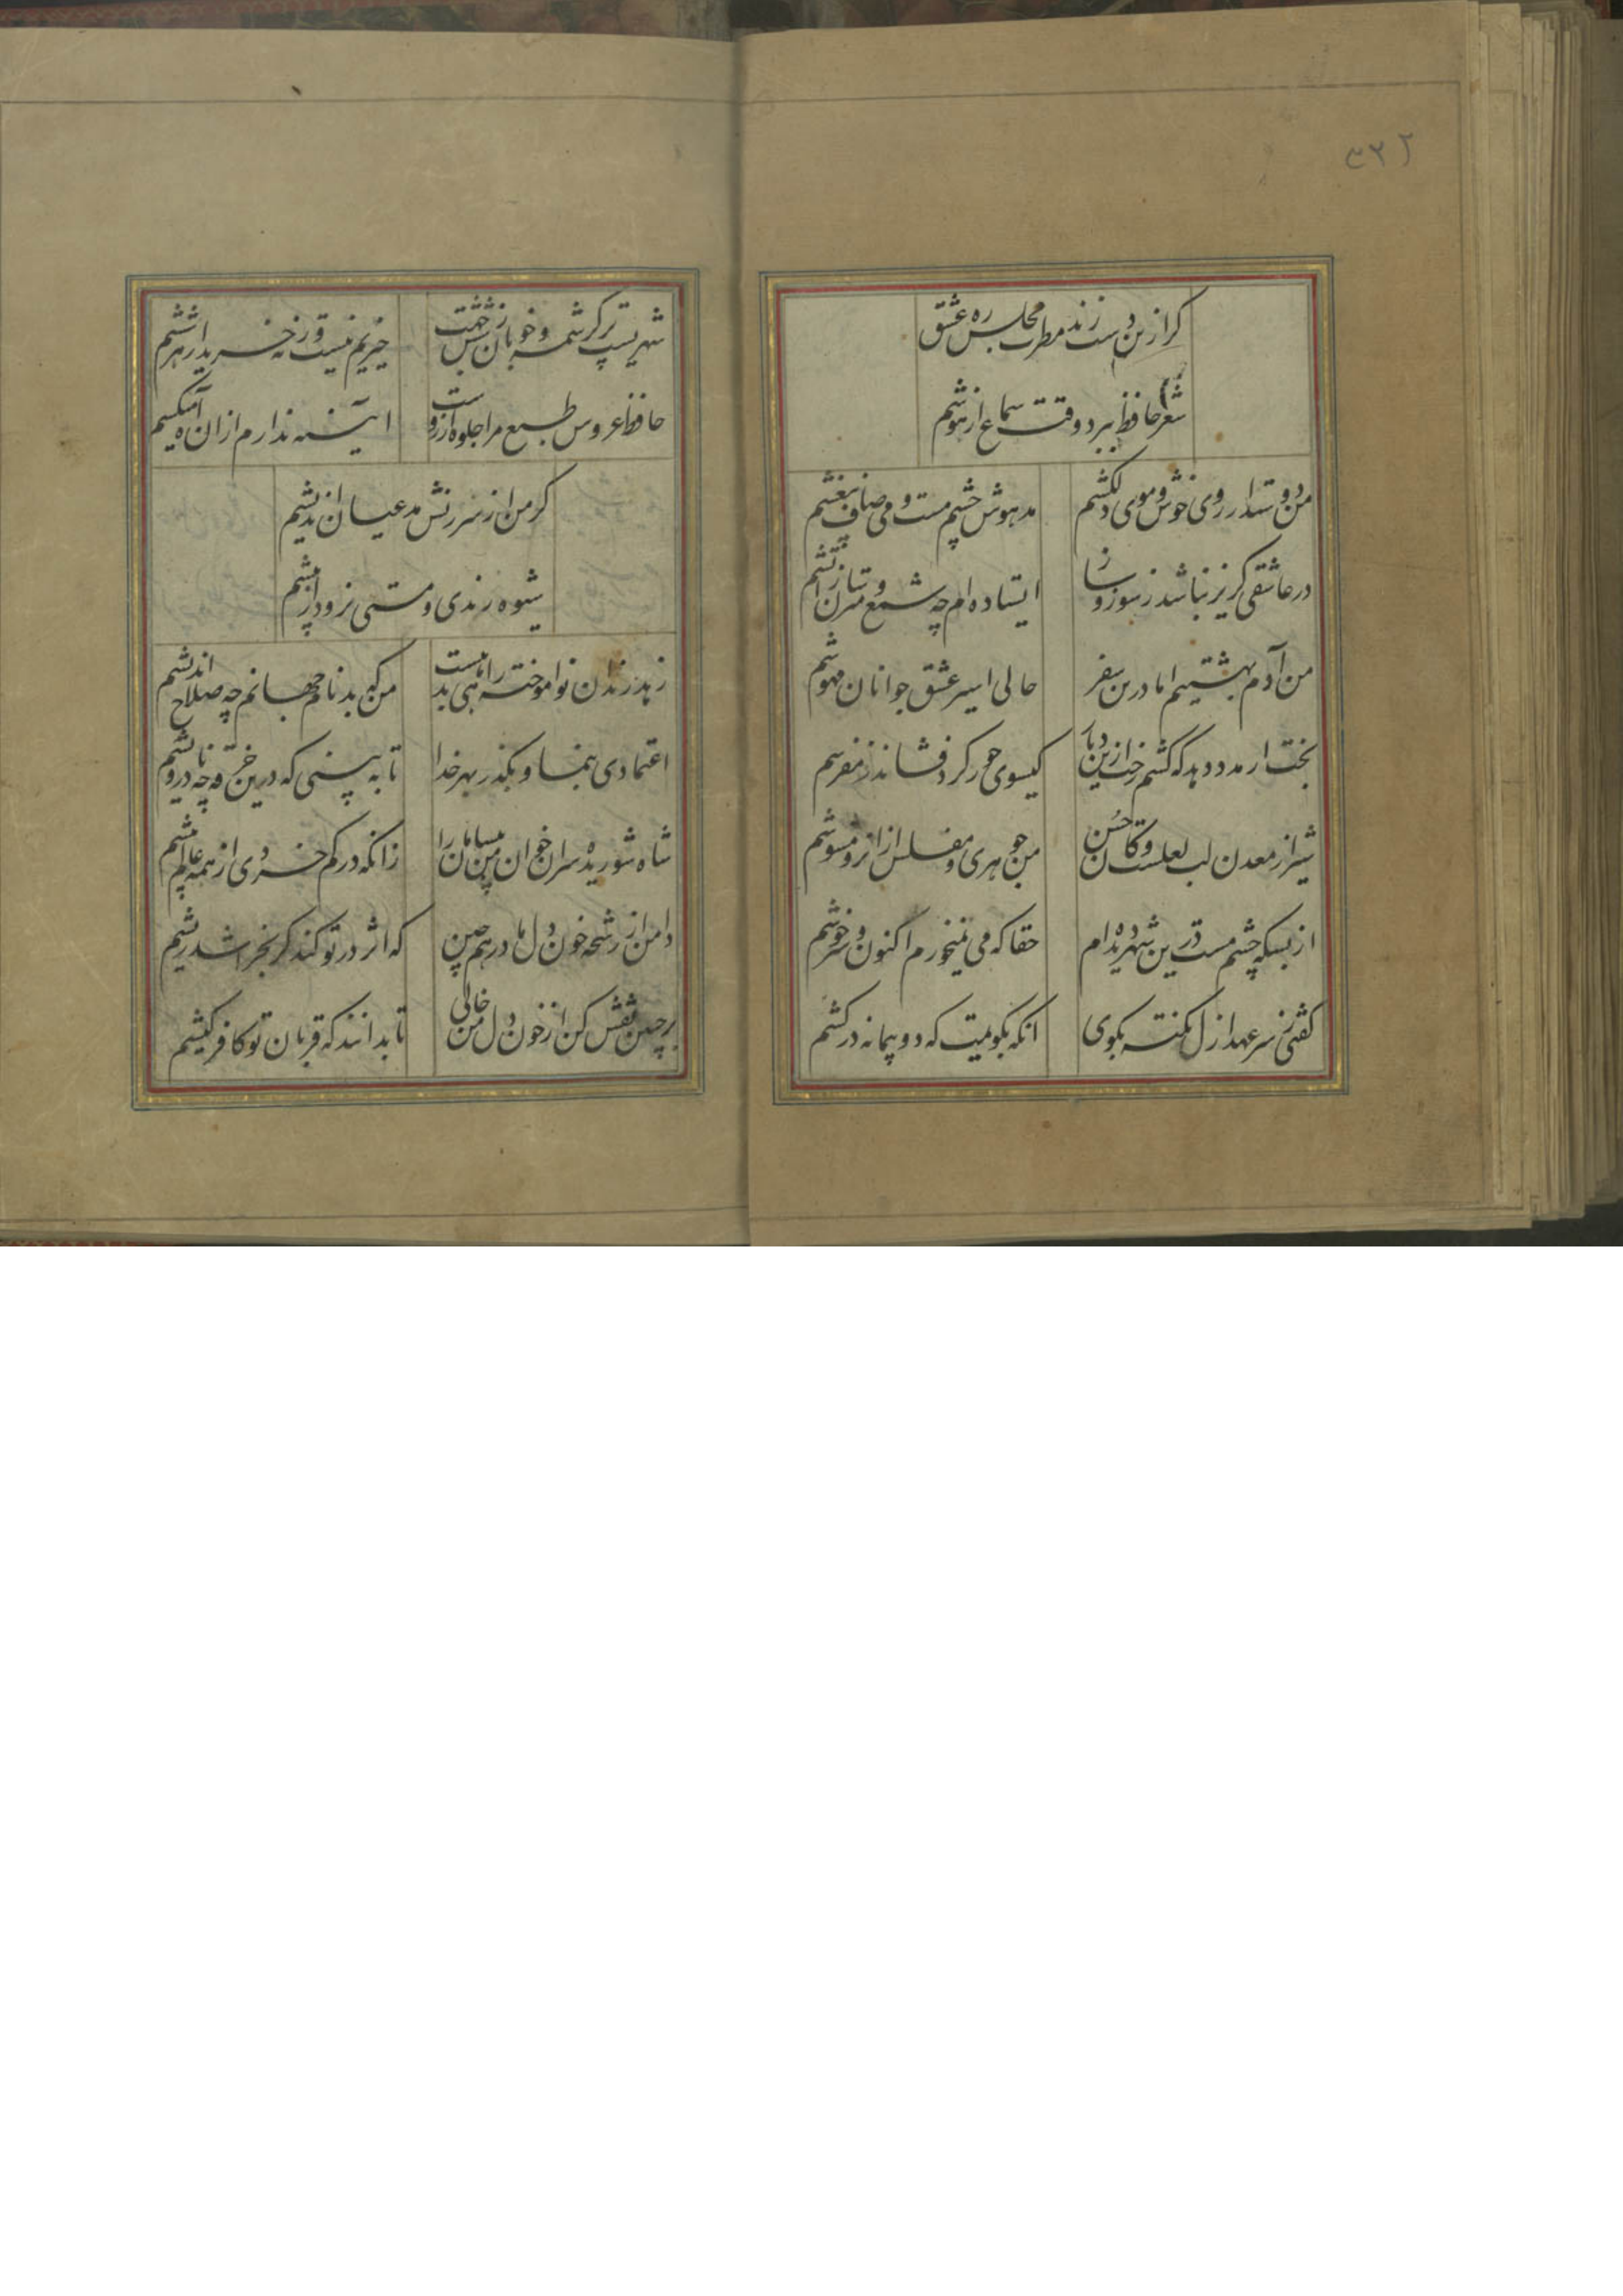 ۳۳۲
کر ازین دست زند مطرب مجلس ره عشق
شعر حافظ ببرد وقت سماع از هوشم
من دوستدار روی خوش و موی دلکشم مدهوش چشم مست و می صاف بیغشم
در عاشقی کریز نباشد ز سوز و ساز ایستاده ام چه شمع و مترسان ز آتشم
من آدم بهشتیم اما درین سفر حالی اسیر عشق جوانان مهوشم
بخت ار مدد دهد که کشم رخت ازین دیار کیسوی حور کرد فشاند ز مفرشم
شیراز معدن لب لعلست و کان حسن من جوهری و مفلس از انرو مشوشم
از بسکه چشم مست درین شهر دیده ام حقا که می نمیخورم اکنون و سرخوشم
کفتی ز سر عهد ازل نکته بکوی انکه بکویمت که دو پیمانه درکشم
شهریست پر کرشمه و خوبان ز شش جهت چیزیم نیست ورنه خریدار هر ششم
حافظ عروس طبع مرا جلوه آرزوست ایینه ندارم از ان آه میکشم
کر من از سرزنش مدعیان اندیشم
شیوه رندی و مستی نرود از پیشم
زهد رندان نو اموخته راهی بدهیست من که بدنام جهانم چه صلاح اندیشم
اعتمادی بنما و بکذر بهر خدا تا به بینی که درین خرقه چه نادرویشم
شاه شوریده سران خوان من بیسامان را زانکه در کم خردی از همه عالم بیشم
دامن از رشحه خون دل ما درهم چین که اثر در تو کند کر بخراشد ریشم
بر جبین نقش کن از خون دل من خالی تا بدانند که قربان تو کافر کیشم